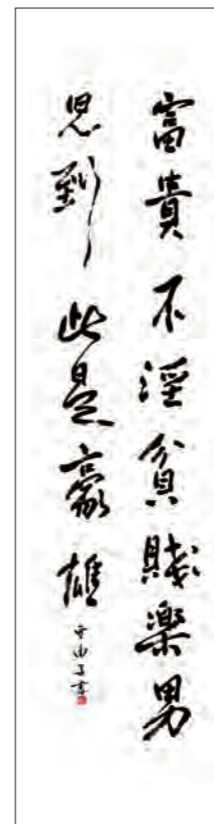 富貴不淫貧賤楽男
児到此是豪雄